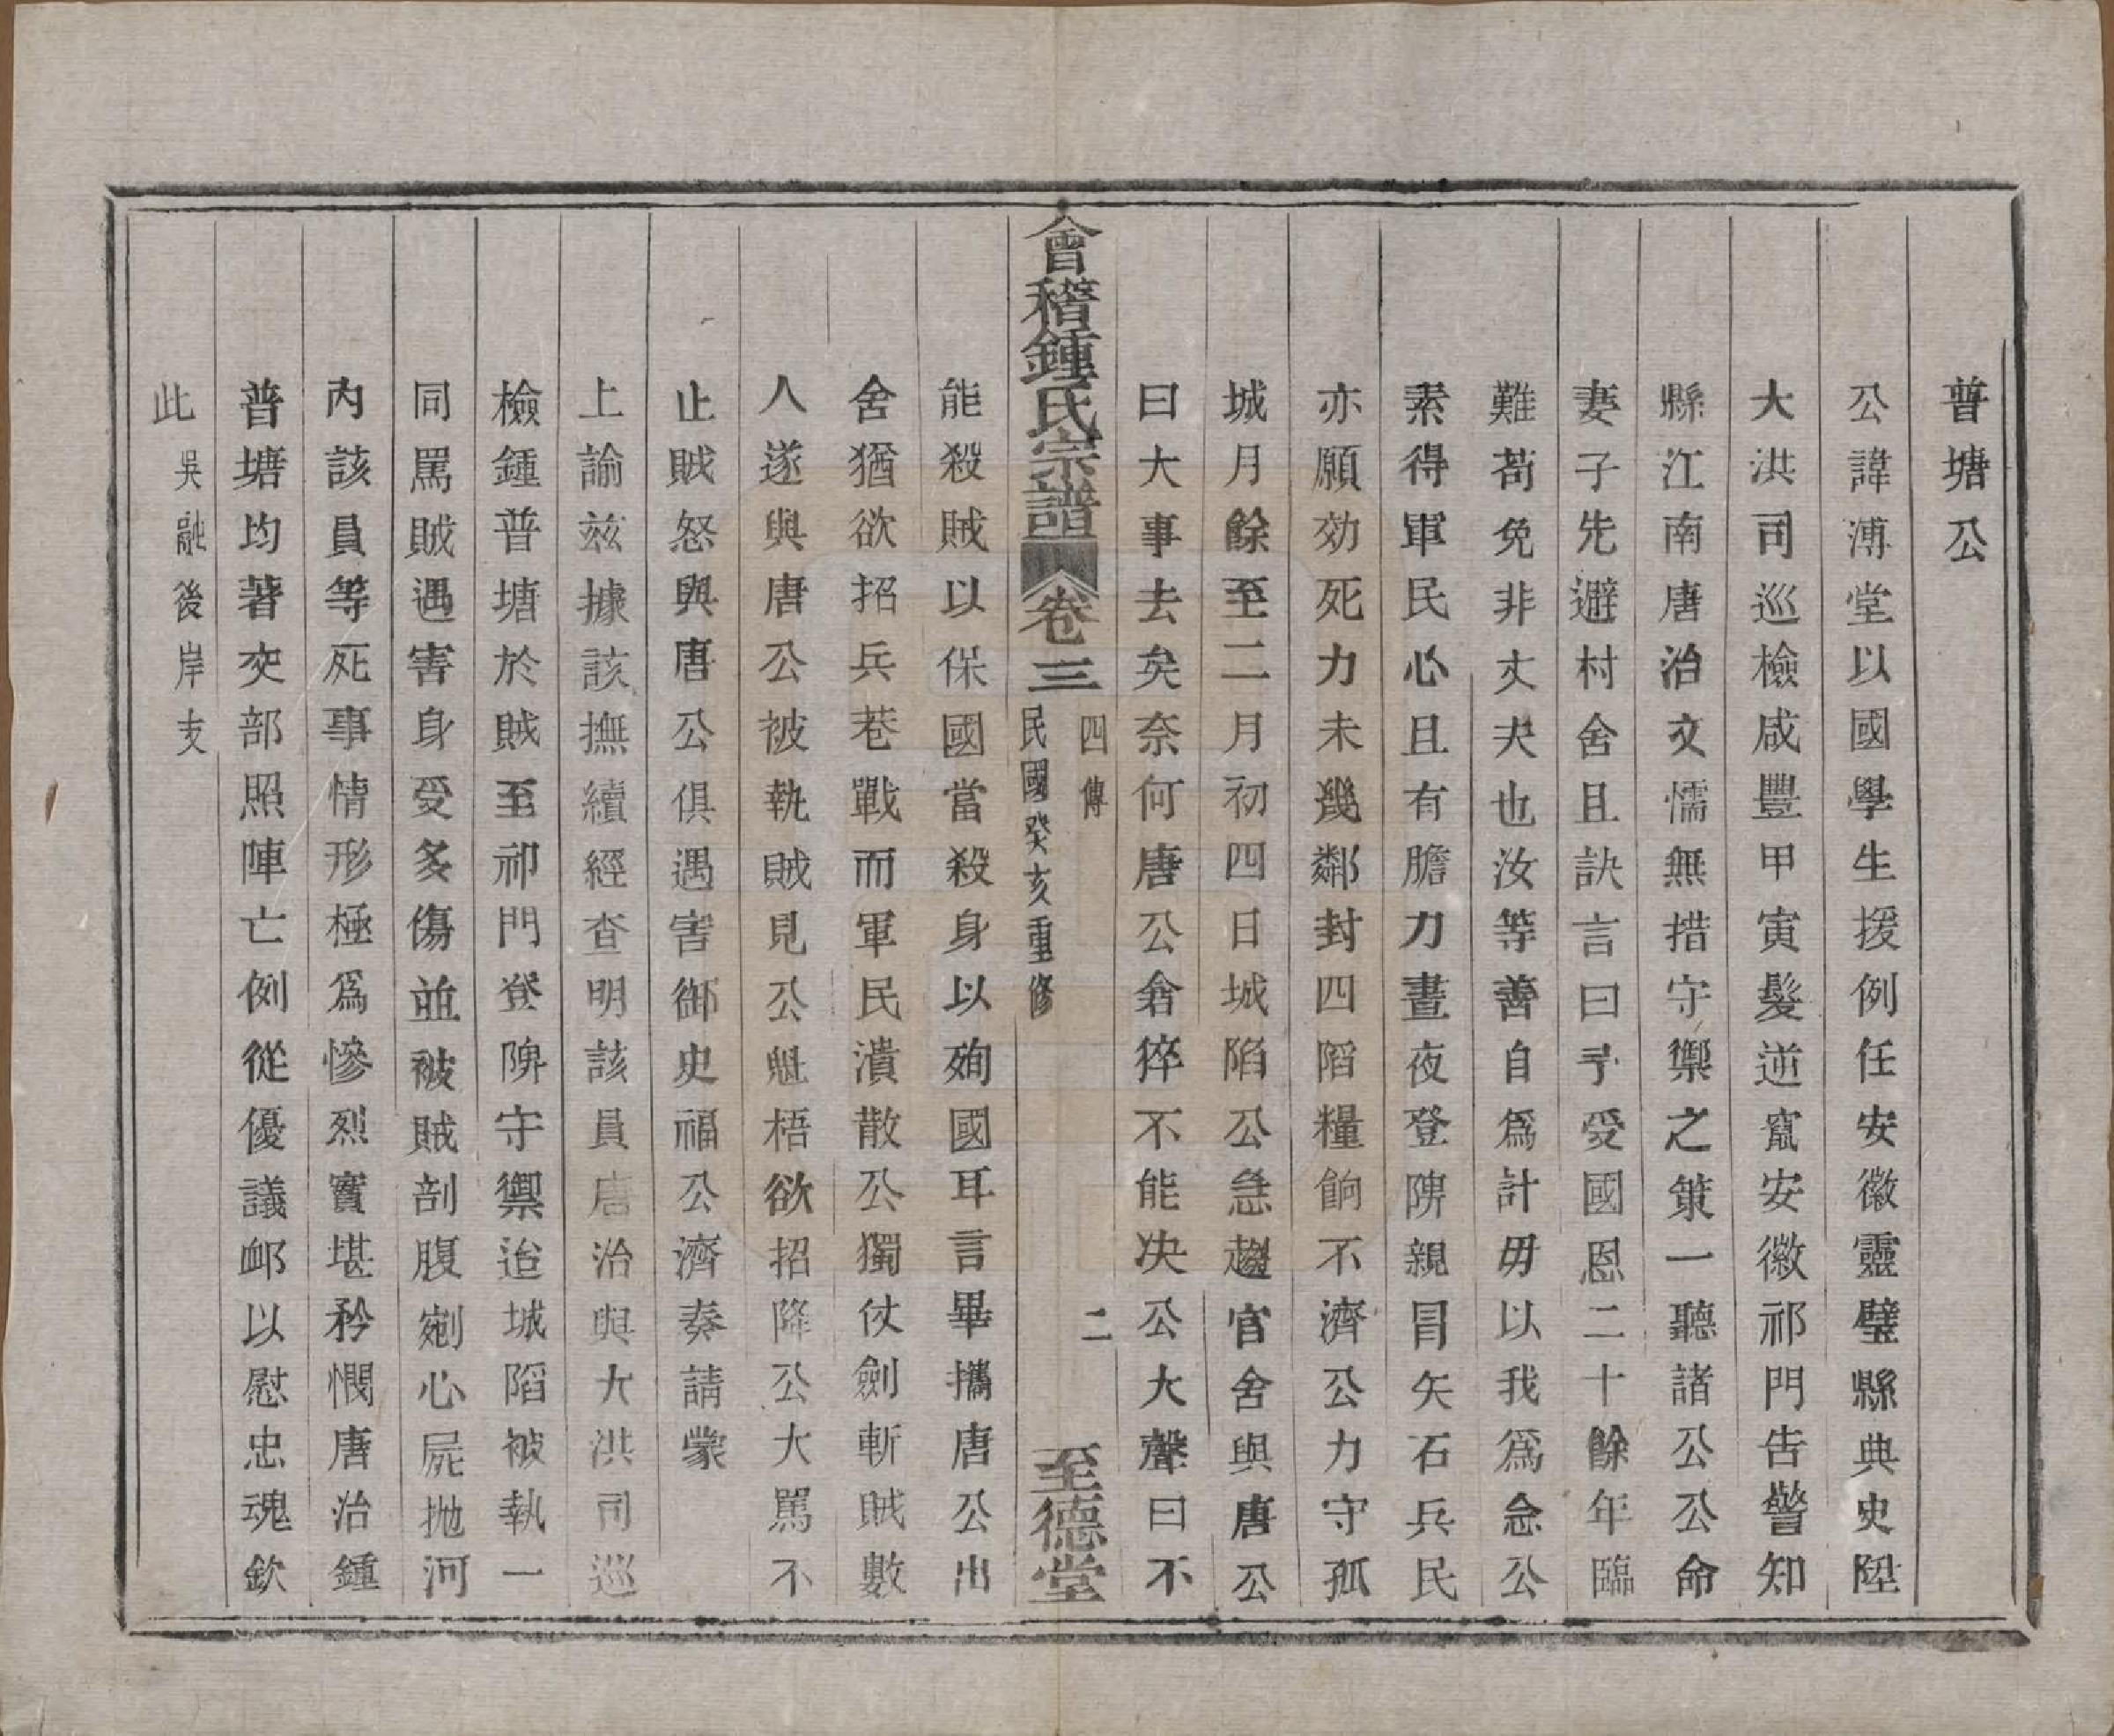 普塘公
公諱溥堂以國學生援例任安徽靈璧縣典史陞
大洪司巡檢咸豐甲寅髮逆竄安徽祁門告警知
縣江南唐治文懦無措守禦之策一聽諸公公命
妻子先避村舍且訣言曰予受國恩二十餘年臨
難苟免非丈夫也汝等善自爲計毋以我爲念公
素得軍民心且有膽力晝夜登陴親冒矢石兵民
亦願効死力未幾鄰封四陷糧餉不濟公力守孤
城月餘至二月初四日城陷公急趨官舍與唐公
曰大事去矣奈何唐公倉猝不能决公大聲曰不
會稽鍾氏宗譜 卷三 四傳 民國癸亥重修 二 至德堂
能殺賊以保國當殺身以殉國耳言畢攜唐公出
舍猶欲招兵巷戰而軍民潰散公獨仗劍斬賊數
人遂與唐公被執賊見公魁梧欲招降公大罵不
止賊怒與唐公俱遇害御史福公濟奏請蒙
上諭玆據該撫續經查明該員唐治與大洪司巡
檢鍾普塘於賊至祁門登陴守禦迨城陷被執一
同罵賊遇害身受多傷並被賊剖腹剜心屍拋河
內該員等死事情形極爲慘烈實堪矜憫唐治鍾
普塘均著交部照陣亡例從優議卹以慰忠魂欽
此 吳融後岸支